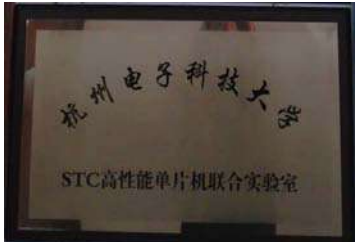 杭州电子科技大学
STC高性能单片机联合实验室